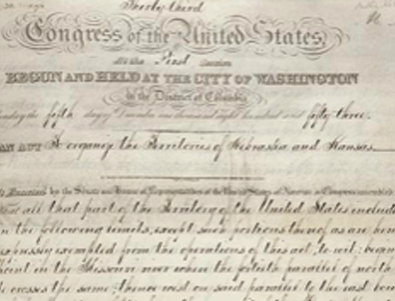 Thirty third
Congress of the United States,
At the First Session
BEGUN AND HELD AT THE CITY OF WASHINGTON
in the District of Columbia
the fifth day of December one thousand eight hundred and fifty three.
AN ACT To organize the Territories of Nebraska and Kansas
by the Senate and House of Representatives of the United States of America in Congress assembled
all that part of the Territory of the United States included
the following limits, except such portions thereof as are
expressly exempted from the operations of this act, to wit:
in the Missouri river where the fortieth parallel of north
crosses the same; thence west on said parallel to the east